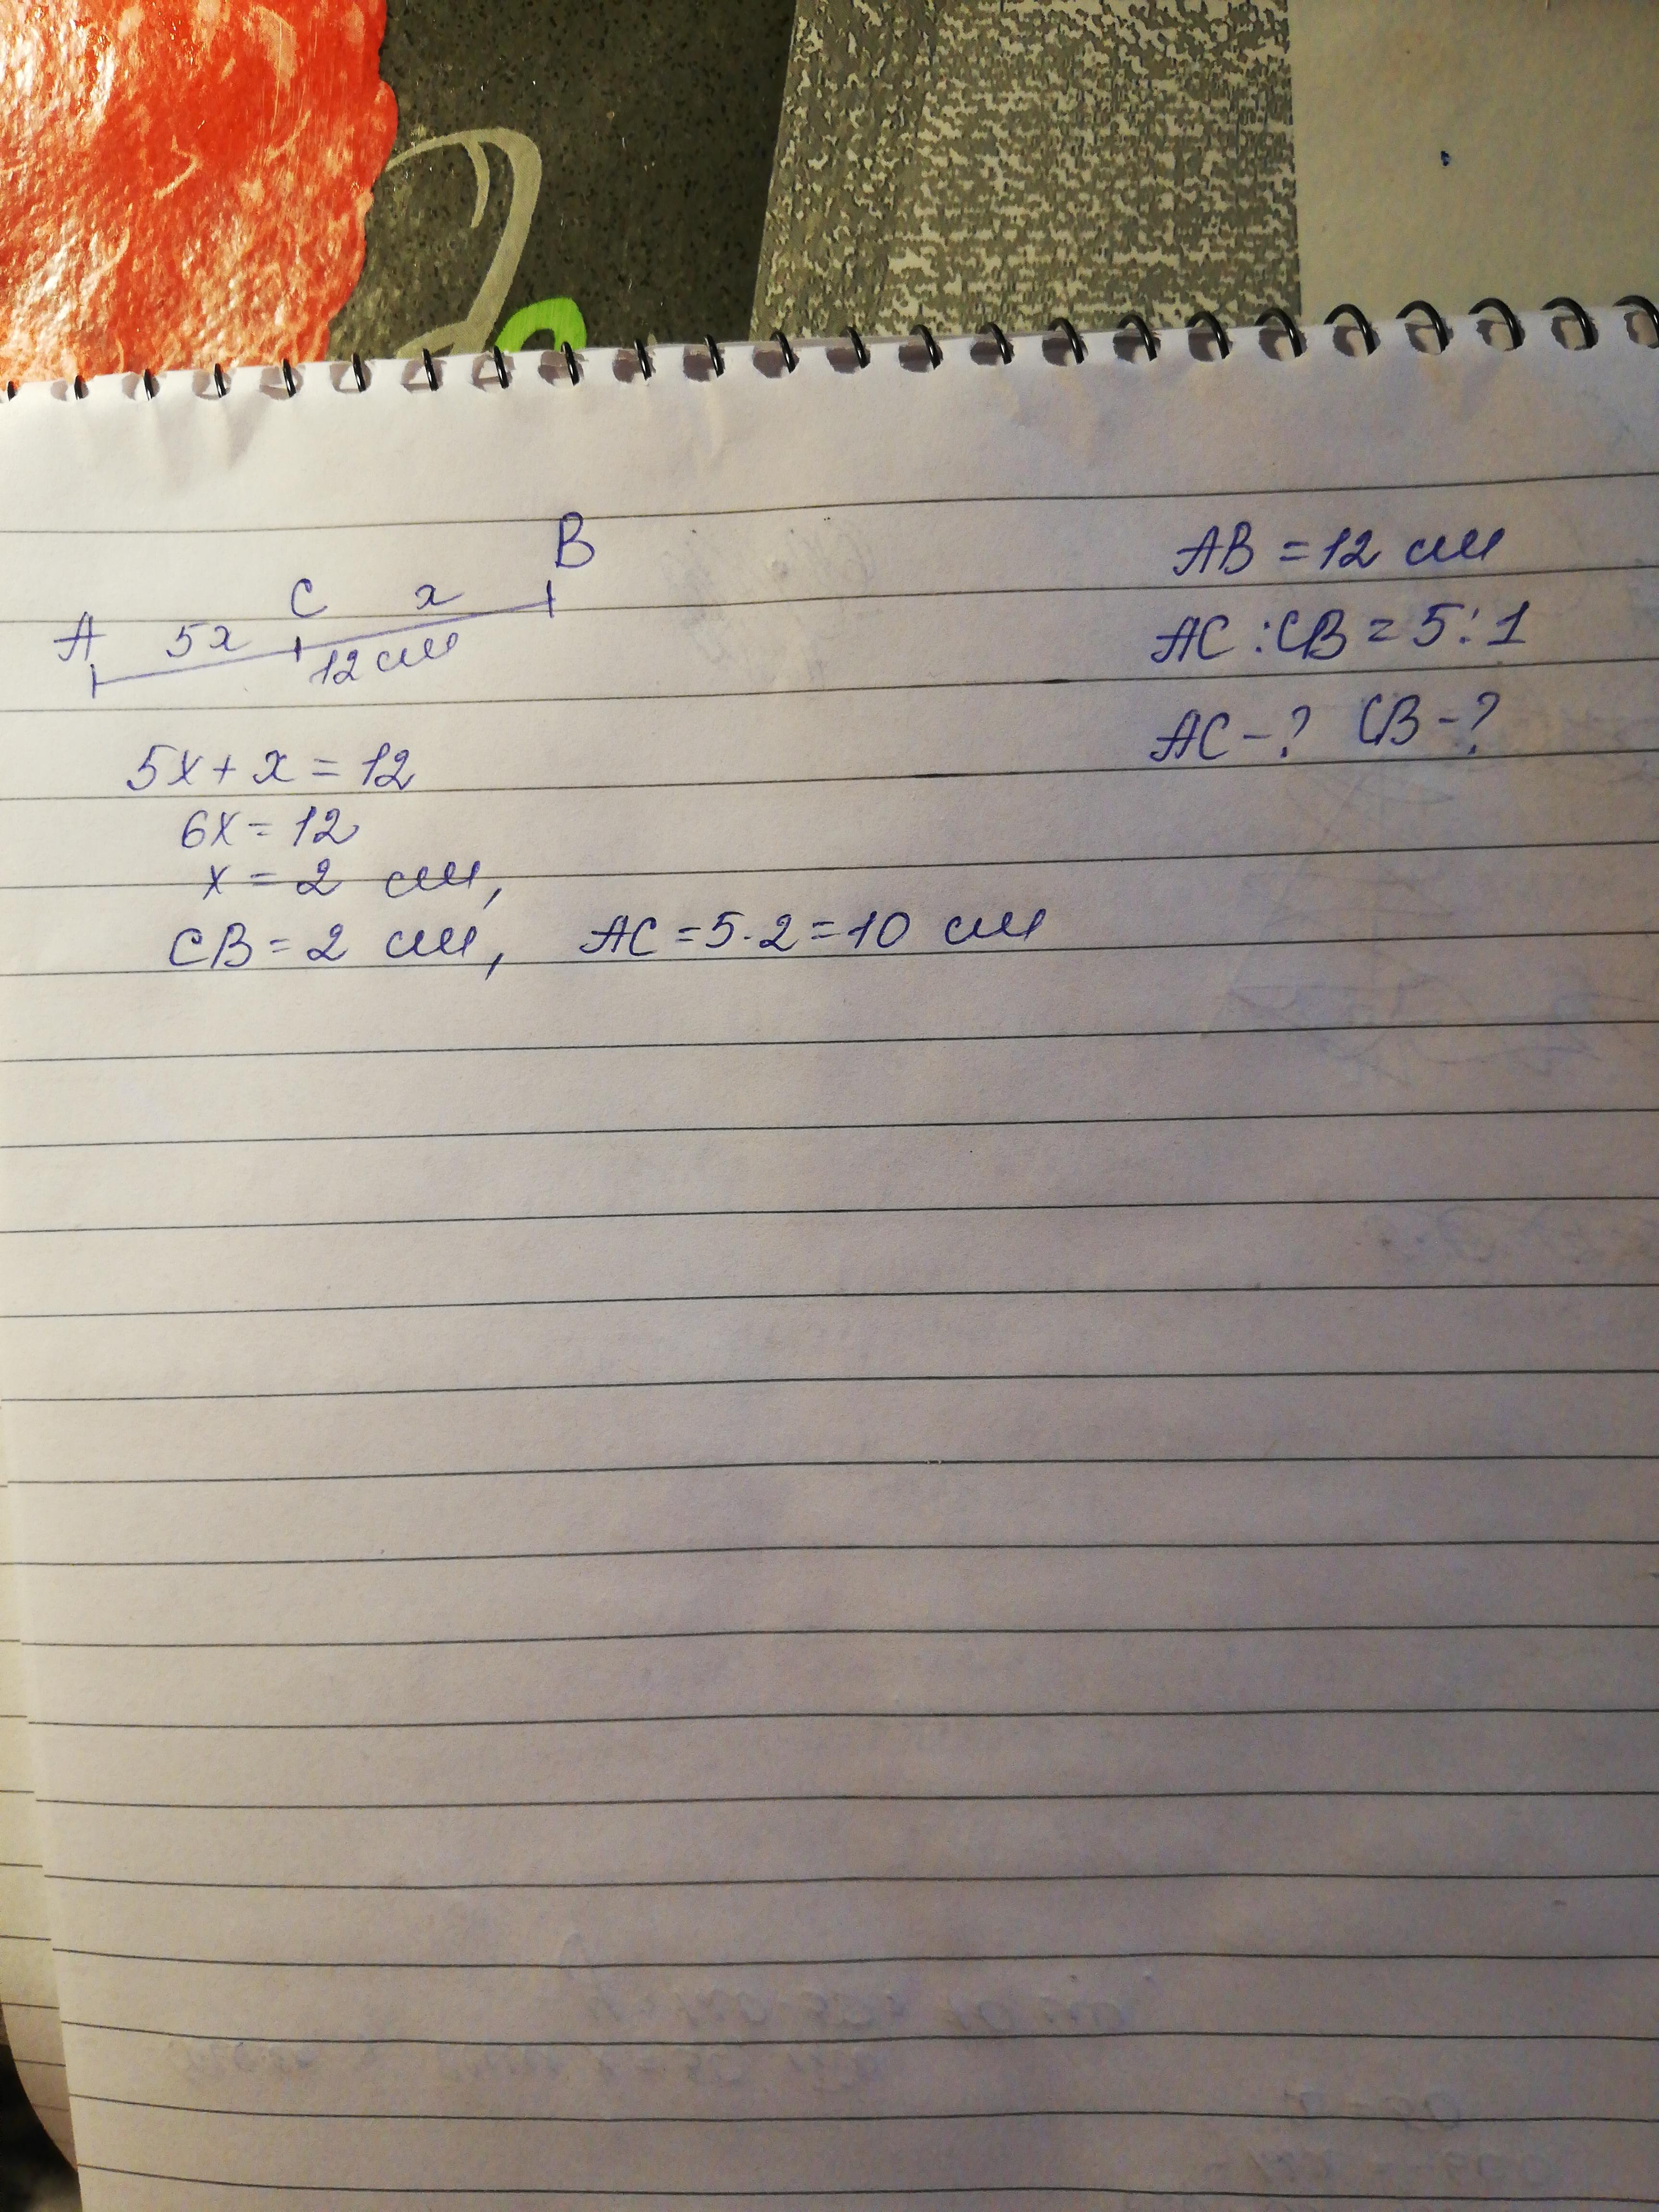 AB = 12 см
AC : CB = 5 : 1
AC - ? CB - ?
A 5x C x B
12 см
5x + x = 12
6x = 12
x = 2 см,
CB = 2 см, AC = 5 · 2 = 10 см